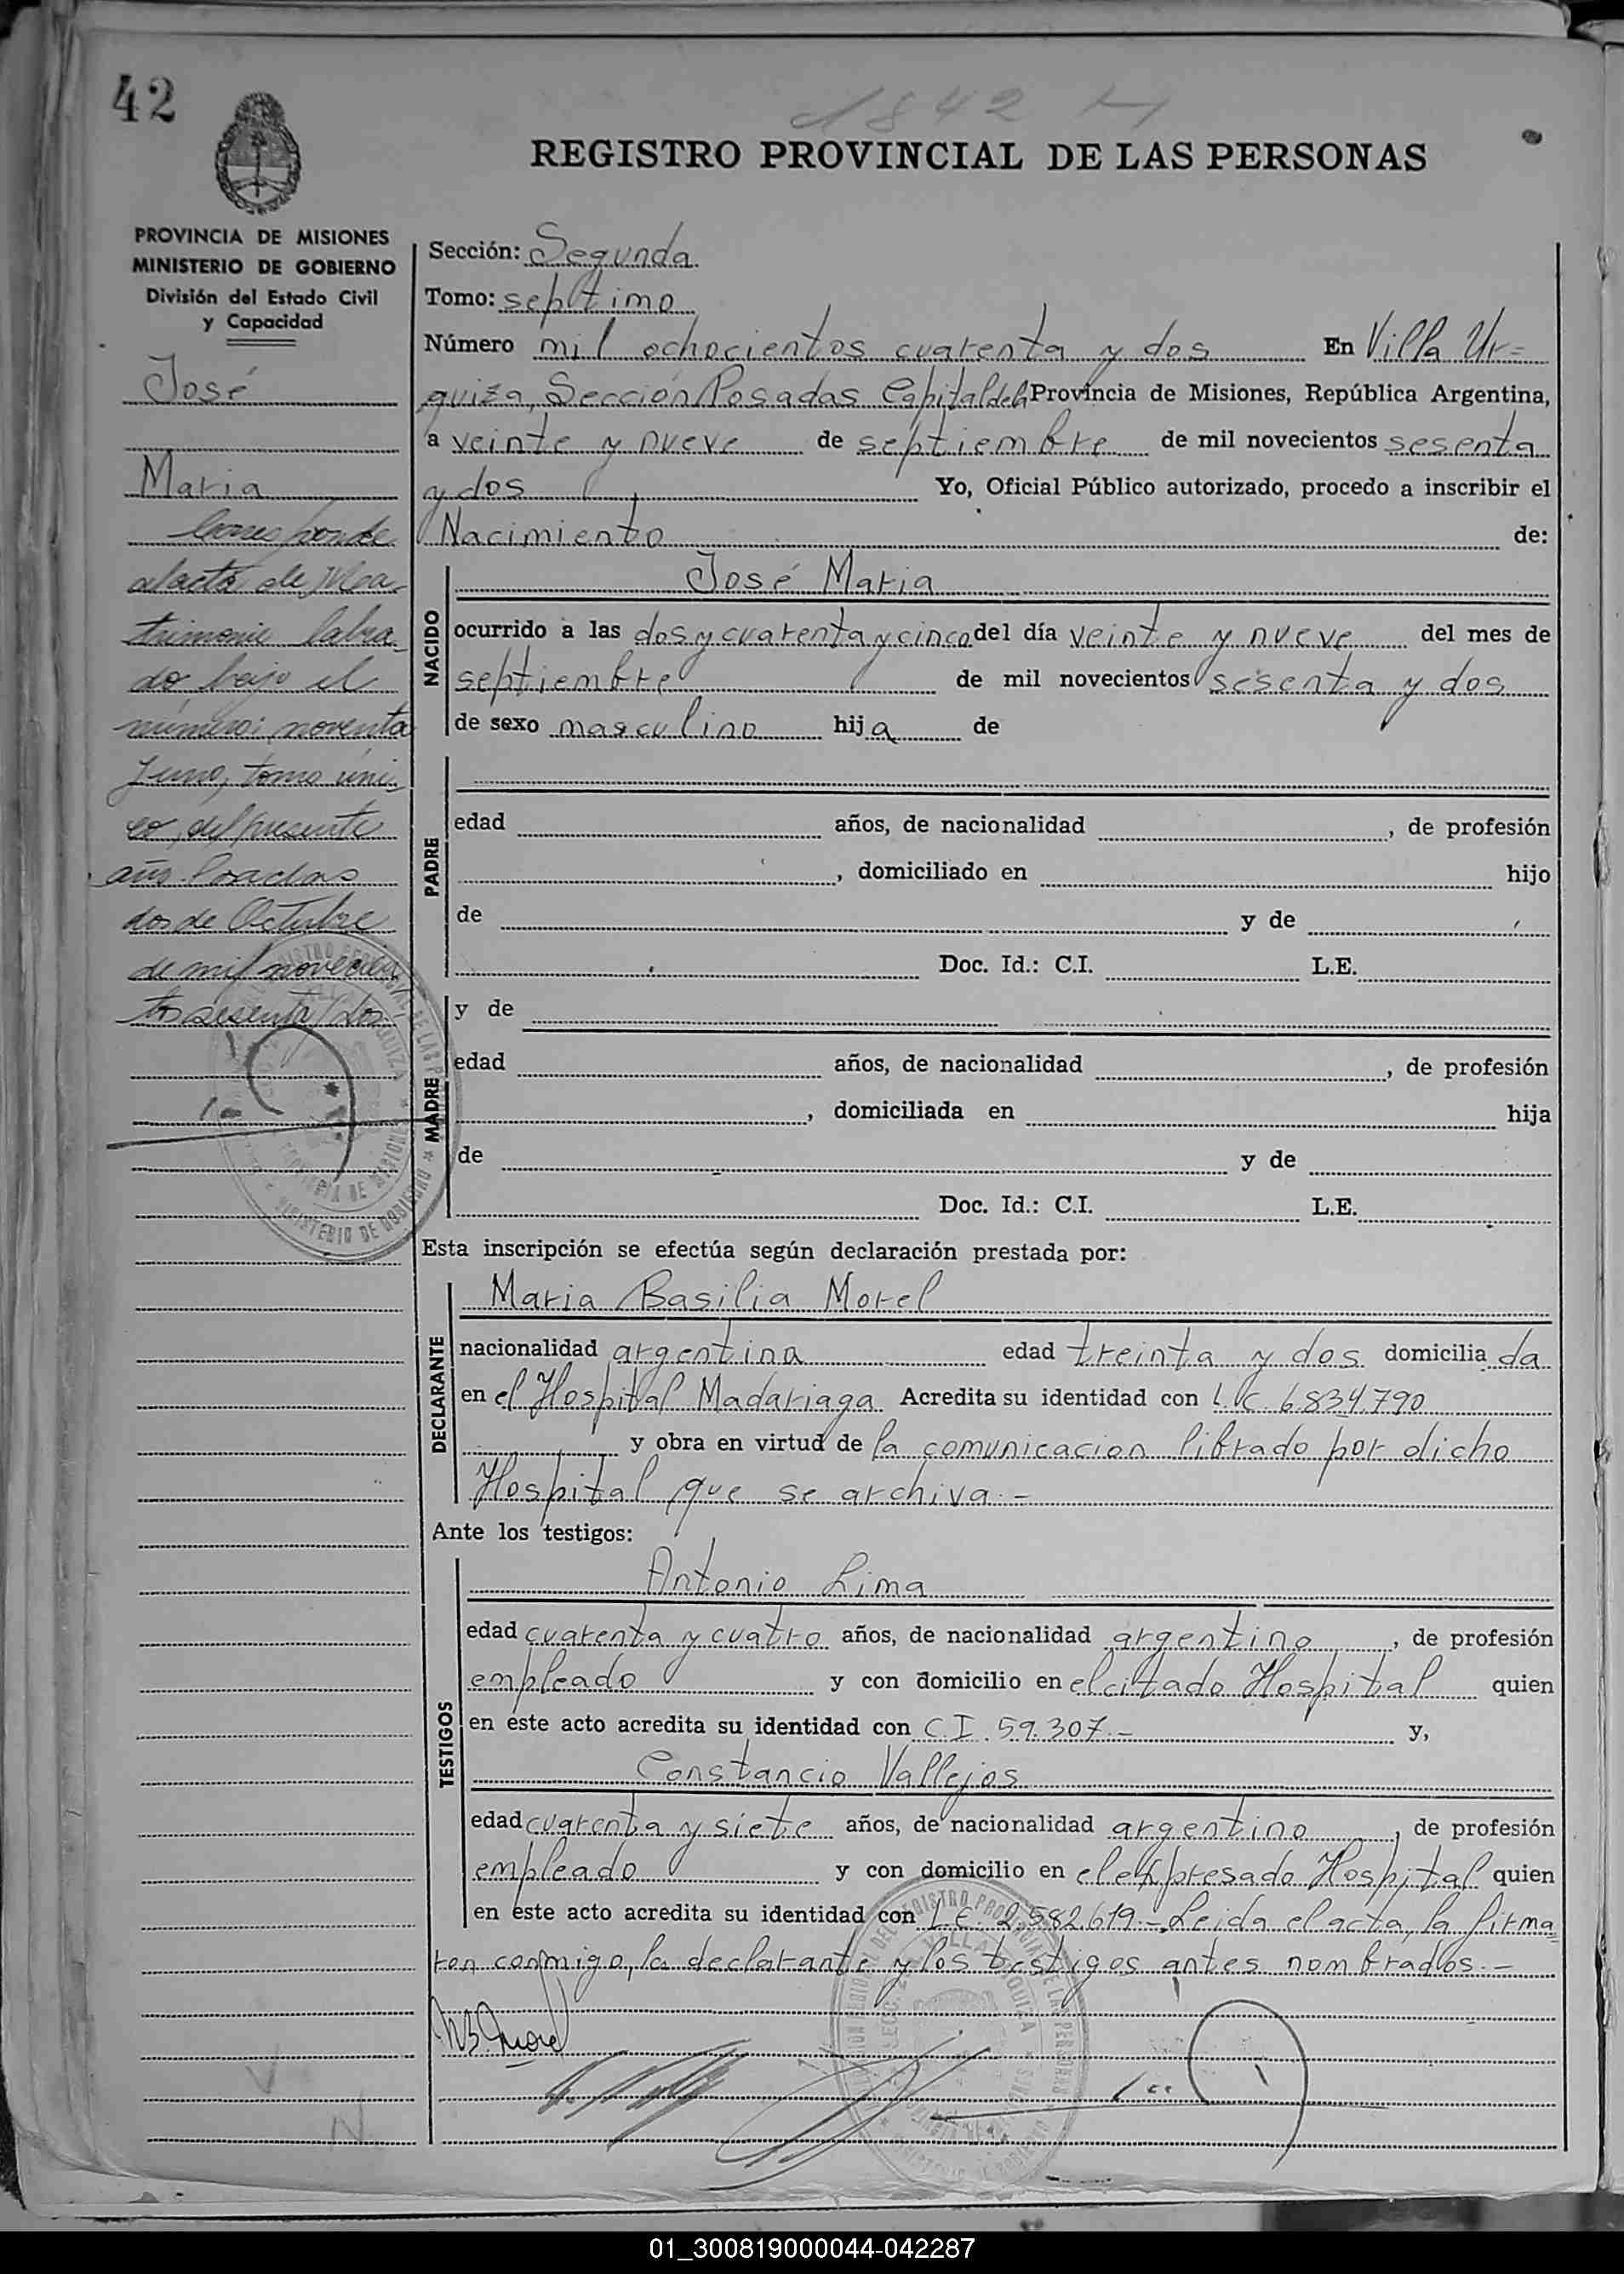 42
1842 H
REGISTRO PROVINCIAL DE LAS PERSONAS
PROVINCIA DE MISIONES
MINISTERIO DE GOBIERNO
División del Estado Civil
y Capacidad
José
Maria
Corresponde
al acta de Ma-
trimonio labra-
do bajo el
número: noventa
y uno, tomo úni-
co, del presente
año. Posadas
dos de Octubre
de mil novecien
tos sesenta y dos
Sección: Segunda
Tomo: septimo
Número mil ochocientos cuarenta y dos En Villa Ur=
quiza, Sección Posadas Capital de la Provincia de Misiones, República Argentina,
a veinte y nueve de septiembre de mil novecientos sesenta
y dos Yo, Oficial Público autorizado, procedo a inscribir el
Nacimiento de:
NACIDO
José Maria
ocurrido a las dos y cuarenta y cinco del día veinte y nueve del mes de
septiembre de mil novecientos sesenta y dos
de sexo masculino hija de
PADRE
edad años, de nacionalidad , de profesión
, domiciliado en hijo
de y de
Doc. Id.: C.I. L.E.
MADRE
y de
edad años, de nacionalidad , de profesión
, domiciliada en hija
de y de
Doc. Id.: C.I. L.E.
Esta inscripción se efectúa según declaración prestada por:
DECLARANTE
Maria Basilia Morel
nacionalidad argentina edad treinta y dos domicilia da
en el Hospital Madariaga Acredita su identidad con L.C. 6.834.790
y obra en virtud de la comunicacion librado por dicho
Hospital que se archiva.-
Ante los testigos:
TESTIGOS
Antonio Lima
edad cuarenta y cuatro años, de nacionalidad argentino, de profesión
empleado y con domicilio en el citado Hospital quien
en este acto acredita su identidad con C.I. 59.307.- y,
Constancio Vallejos
edad cuarenta y siete años, de nacionalidad argentino, de profesión
empleado y con domicilio en el expresado Hospital quien
en este acto acredita su identidad con L.E. 2.582.619.- Leida el acta, la firma=
ron conmigo, la declarante y los testigos antes nombrados.-
M B. Morel
01_300819000044-042287